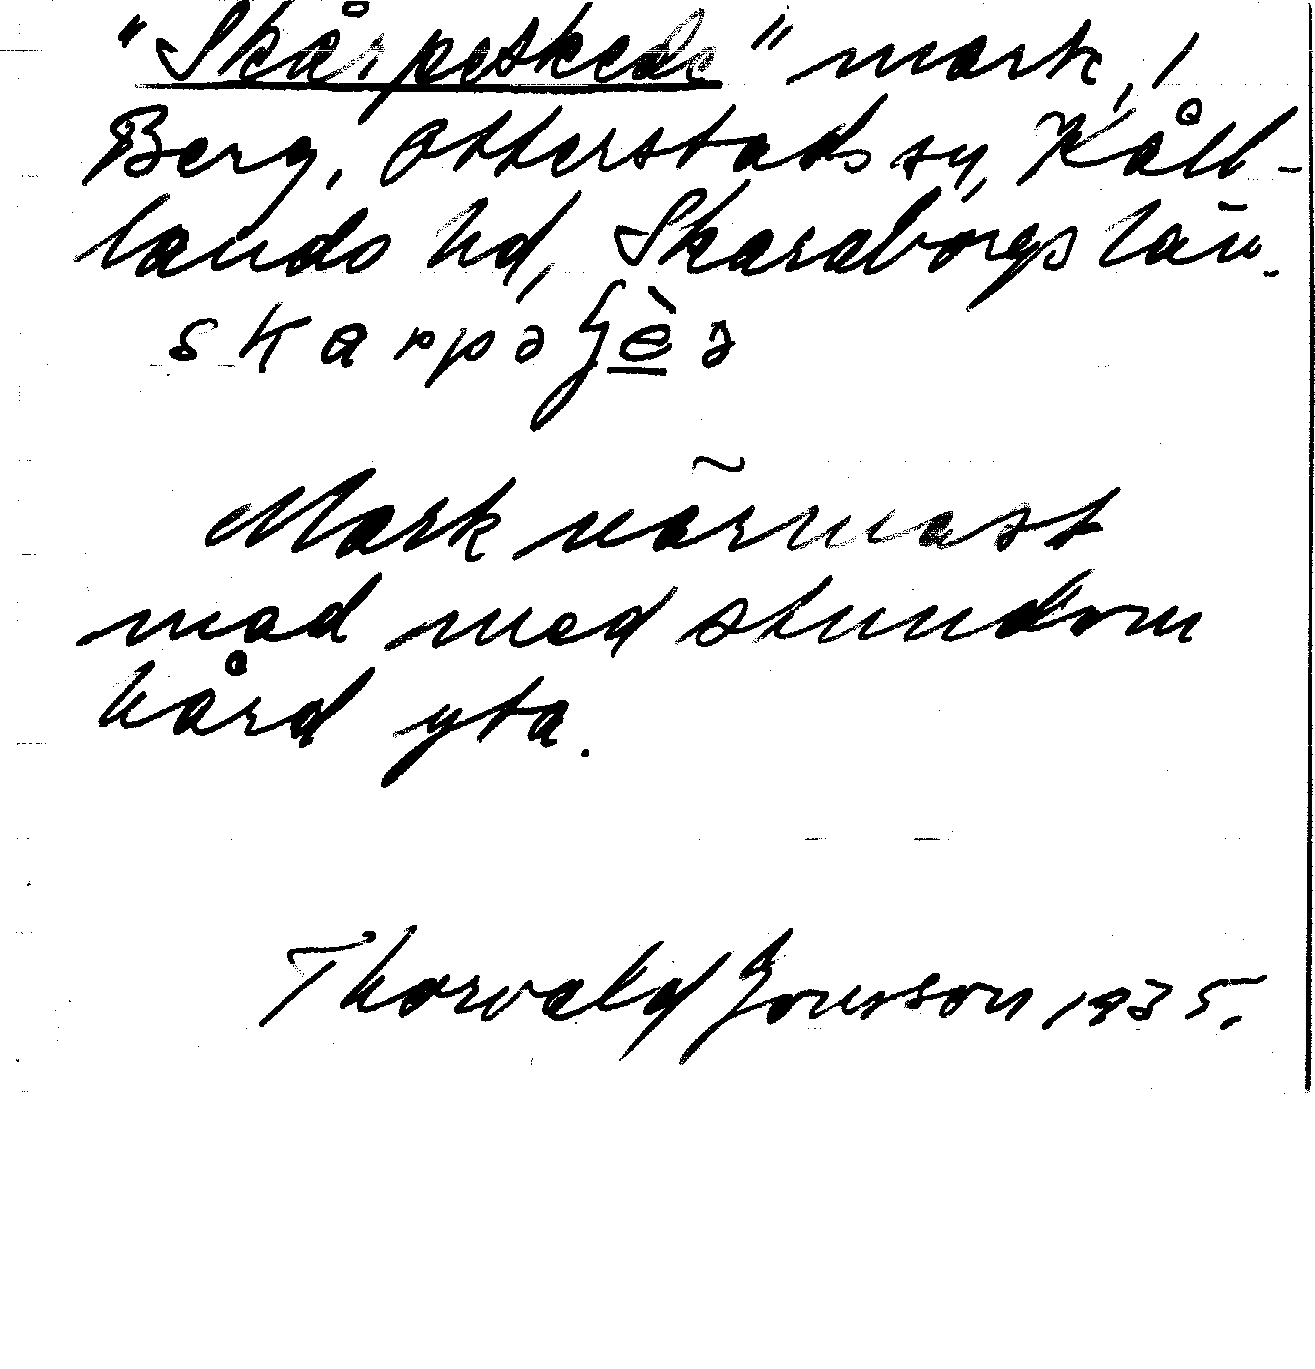 "Skårpeskede" mark, i
Berg, Otterstads sn, Kål-
lands hd, Skaraborgs län.
Mark närmast
mad med stundom
hård yta.
Thorvald Jonsson 1935.